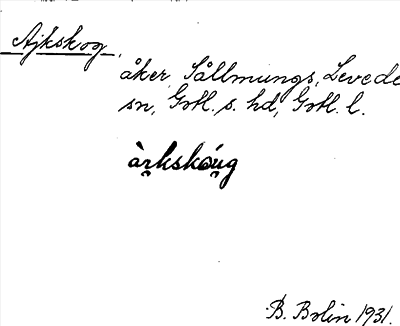 Ajkskog,
åker, Sållmungs, Levede
sn, Gotl. s. hd, Gotl. l.
àrkskóug
B. Bolin 1931.